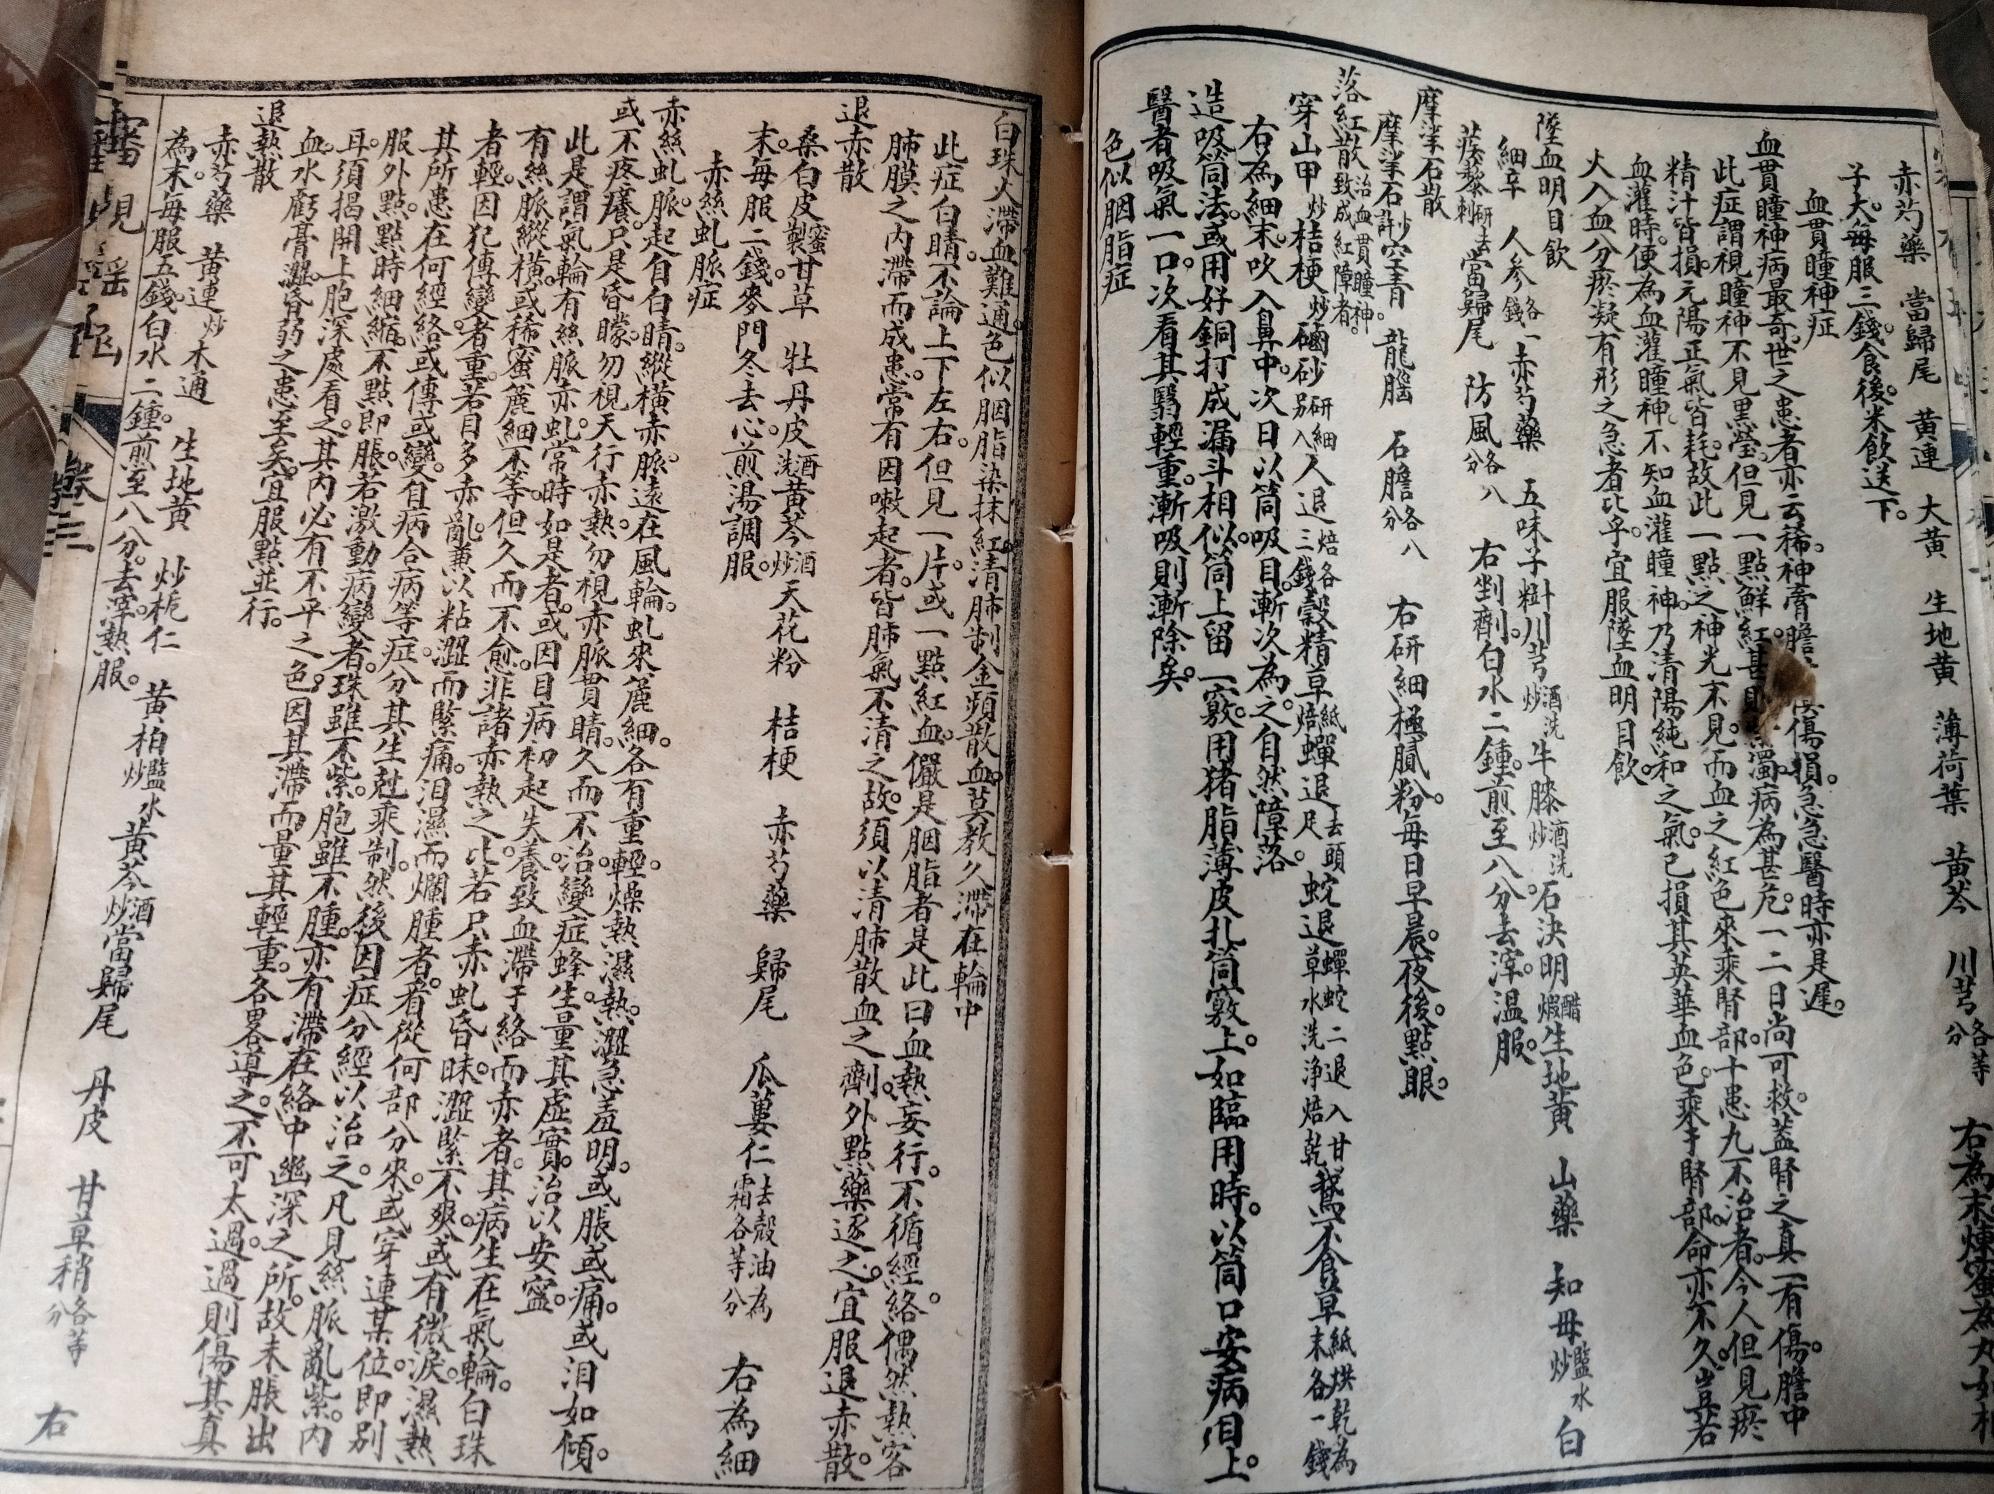 赤芍藥　當歸尾　黃連　大黃　生地黃　薄荷葉　黃芩　川芎各等分　右為末煉蜜為丸如梧
子大。每服三錢。食後米飲送下。
血貫瞳神症
血貫瞳神病最奇。世之患者亦云稀。神膏膽 傷損。急急醫時亦是遲。
此症謂視瞳神不見黑瑩。但見一點鮮紅。甚則 濁。病為甚危。一二日尚可救。蓋腎之真一有傷。膽中
精汁皆損。元陽正氣皆耗。故此一點之神光不見。而血之紅色來乘腎部。十患九不治者。今人但見瘀
血灌時。便為血灌瞳神。不知血灌瞳神。乃清陽純和之氣已損。其英華血色乘于腎部。命亦不久。豈若
火入血分瘀凝有形之急者比乎。宜服墜血明目飲。
墜血明目飲
細辛　人參各一錢　赤芍藥　五味子　川芎酒洗炒　牛膝酒洗炒　石決明醋煆　生地黃　山藥　知母鹽水炒　白
蒺藜研去刺　當歸尾　防風各八分　右剉劑。白水二鍾。煎至八分。去滓。溫服。
摩挲石散
摩挲石少許　空青　龍腦　石膽各八分　右研細極膩粉。每日早晨夜後。點眼。
落紅散治血貫瞳神。致成紅障者。
穿山甲炒　桔梗炒　硇砂研細另入　人退焙各三錢　穀精草紙焙　蟬退去頭足。　蛇退蟬蛇二退入甘草水洗淨焙乾　鵝不食草紙烘乾為末各一錢
右為細末。吹入鼻中。次日以筒吸目。漸次為之。自然障落
造吸筒法。或用好銅打成漏斗相似。筒上留一竅。用猪脂薄皮扎筒竅上。如臨用時。以筒口安病目上。
醫者吸氣一口。次看其翳輕重。漸吸則漸除矣。
色似胭脂症
白珠火滯血難通。色似胭脂染抹紅。清肺制金頻散血。莫教久滯在輪中
此症白睛。不論上下左右。但見一片。或一點紅血。儼是胭脂者是。此曰血熱妄行。不循經絡。偶然熱客
肺膜之內滯而成患。常有因嗽起者。皆肺氣不清之故。須以清肺散血之劑。外點藥逐之。宜服退赤散。
退赤散
桑白皮蜜製　甘草　牡丹皮酒洗　黃芩酒炒　天花粉　桔梗　赤芍藥　歸尾　瓜蔞仁去殼油為霜各等分　右為細
末。每服二錢。麥門冬去心煎湯調服。
赤絲虬脈症
赤絲虬脈。起自白睛。縱橫赤脈。遠在風輪。虬來麄細。各有重輕。燥熱濕熱。澀急羞明。或脹或痛。或泪如傾。
或不疼癢。只是昏矇。勿視天行赤熱。勿視赤脈貫睛。久而不治。變症蜂生。量其虛實。治以安寧。
此是謂氣輪有絲脈赤虬。常時如是者。或因目病初起失養。致血滯于絡而赤者。其病生在氣輪。白珠
有絲脈縱橫。或稀密麄細不等。但久而不愈。非諸赤熱之比。若只赤虬昏昧。澀緊不爽。或有微淚濕熱
者輕。因犯傳變者重。若目多赤亂。兼以粘澀而緊痛。泪濕而爛腫者。看從何部分來。或穿連某位。即別
其所患在何經絡。或傳或變。自病合病等症。分其生尅乘制。然後因症分經以治之。凡見絲脈亂紫。內
服外點。點時細縮。不點即脹。若激動病變者。珠雖不紫。胞雖不腫。亦有滯在絡中幽深之所。故未脹出
耳。須揭開上胞深處看之。其內必有不平之色。因其滯而量其輕重。各畧導之。不可太過。過則傷其真
血。水虧膏澀。昏弱之患至矣。宜服點並行。
退熱散
赤芍藥　黃連炒　木通　生地黃　炒梔仁　黃柏鹽水炒　黃芩酒炒　當歸尾　丹皮　甘草稍各等分　右
為末。每服五錢。白水二鍾。煎至八分。去滓。熱服。
審視瑤函　卷三